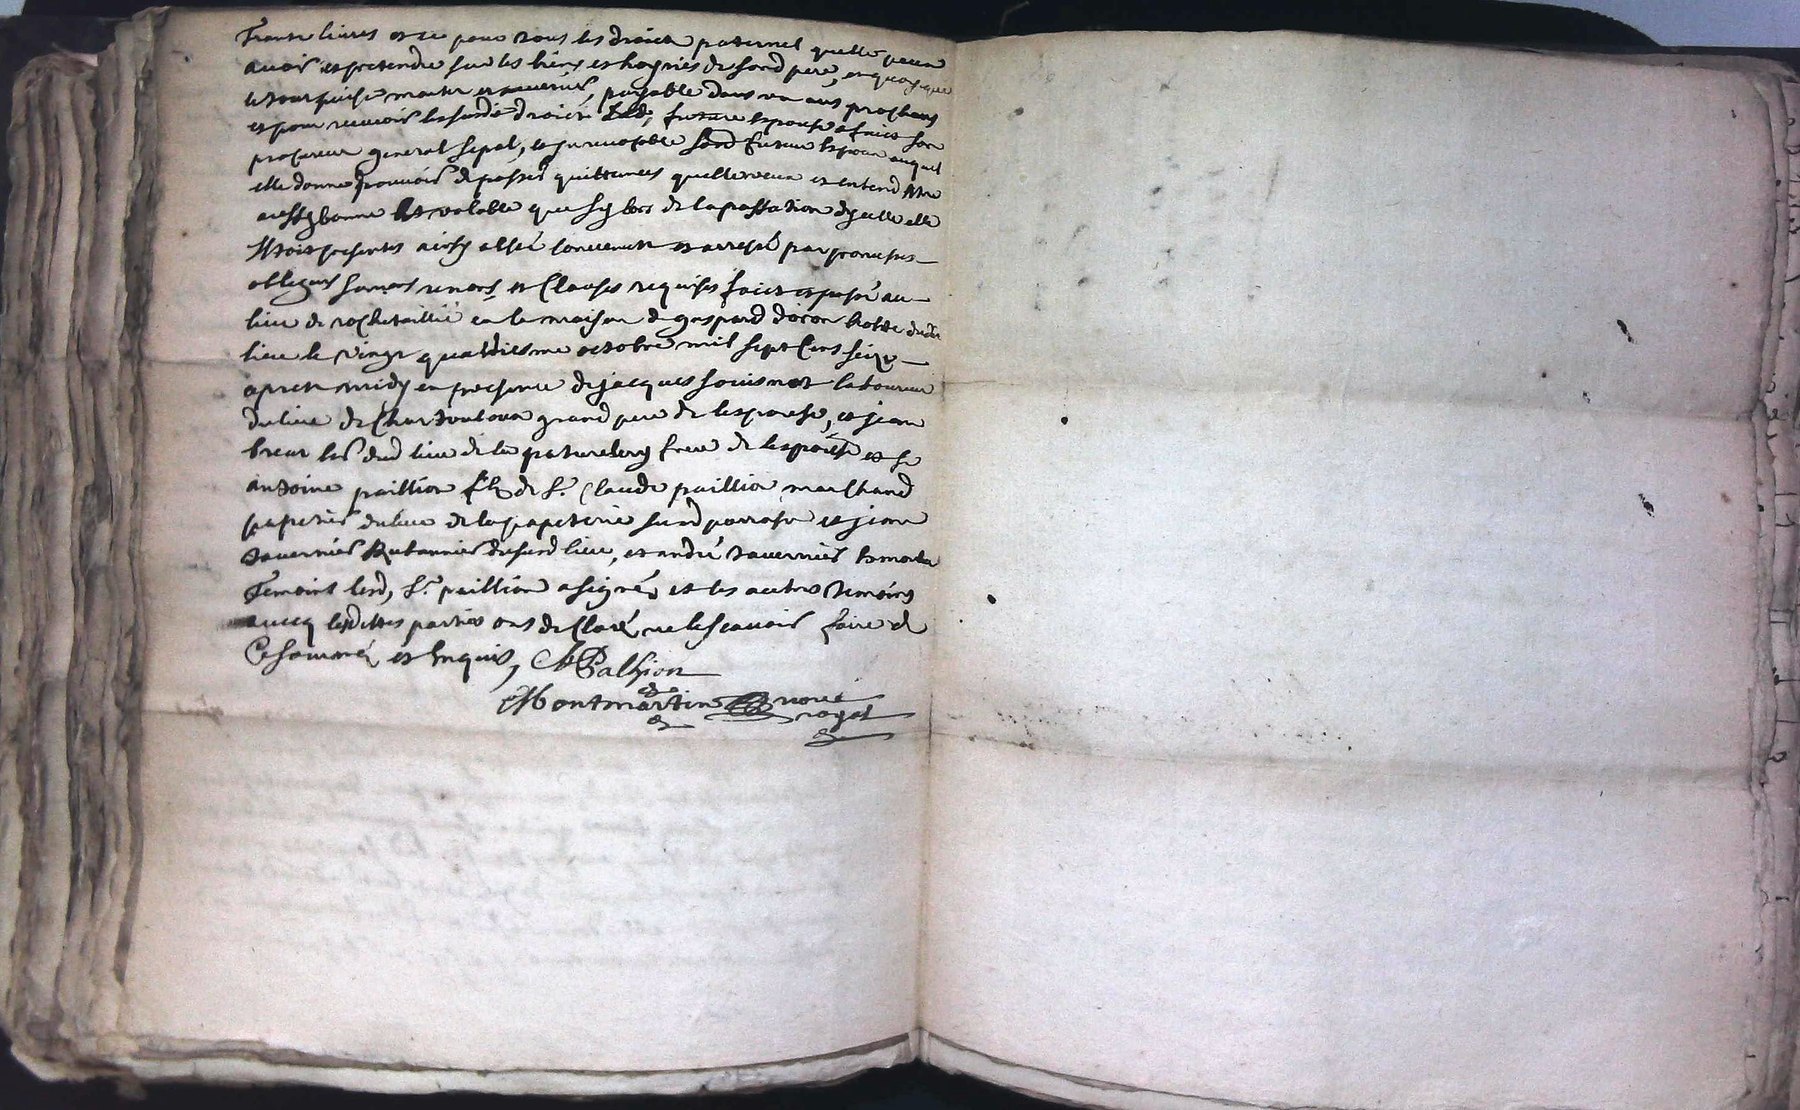 Trante livres et ce pour tous les droicts paternel quelle peux
avoir et pretendre sur les biens et hoyries de sond pere, en quoy que
le tout puisse monter et payable dans un ans prochain
et pour recevoir lesusd droict lad, future espouse a faict son
procureur general special, et irrevocable sond futeur espoux auquel
elle donne pouvoir de passer quittances quelle veux et entend estre
aussy bonne et valable que sy lors de la passation dycelle elle
estoit presentes ainsy a esté convenue et arresté par promesses
obligons renons et Clauses requises faict et passé au
lieu de rochetaillié en la maison de gaspard hoste dudt
lieu le vingt quatriesme octobre mil sept Cens seize
apret midy en presence de jacques souisnot laboureur
du lieu de grand pere de lespouse, et jean
dud lieu de la frere de lespouse et sr
antoine paillion fils de Sr. Claude paillion marchand
papetier du lieu de la papeterie susd parroisse et jean
tavernier Rubannier dususd lieu, et andré tavernier
Temoint led, Sr. paillion a signé, et les autres temoins
avecq lesdittes parties ont de Claré ne le scavoir faire de
Ce sommé, et Enquis, Palhion
Montmartin